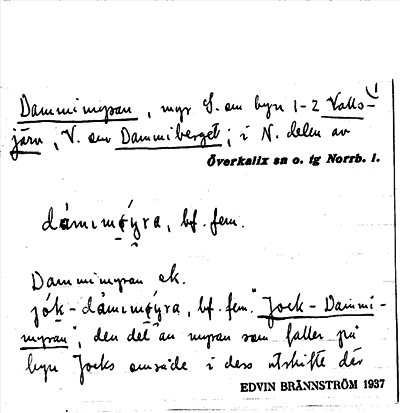 Dammimyran, myr S. om byn 1-2 Valls-
järv, V. om Dammiberget; i N. delen av
Överkalix sn o. tg Norrb. l.
dámımǿyra, bf. fem.
Dammimyran ek.
jók-dámımǿyra, bf. fem. "Jock-Dammi-
myran", den del av myran som faller på
byn Jocks område i dess utskifte där
EDVIN BRÄNNSTRÖM 1937